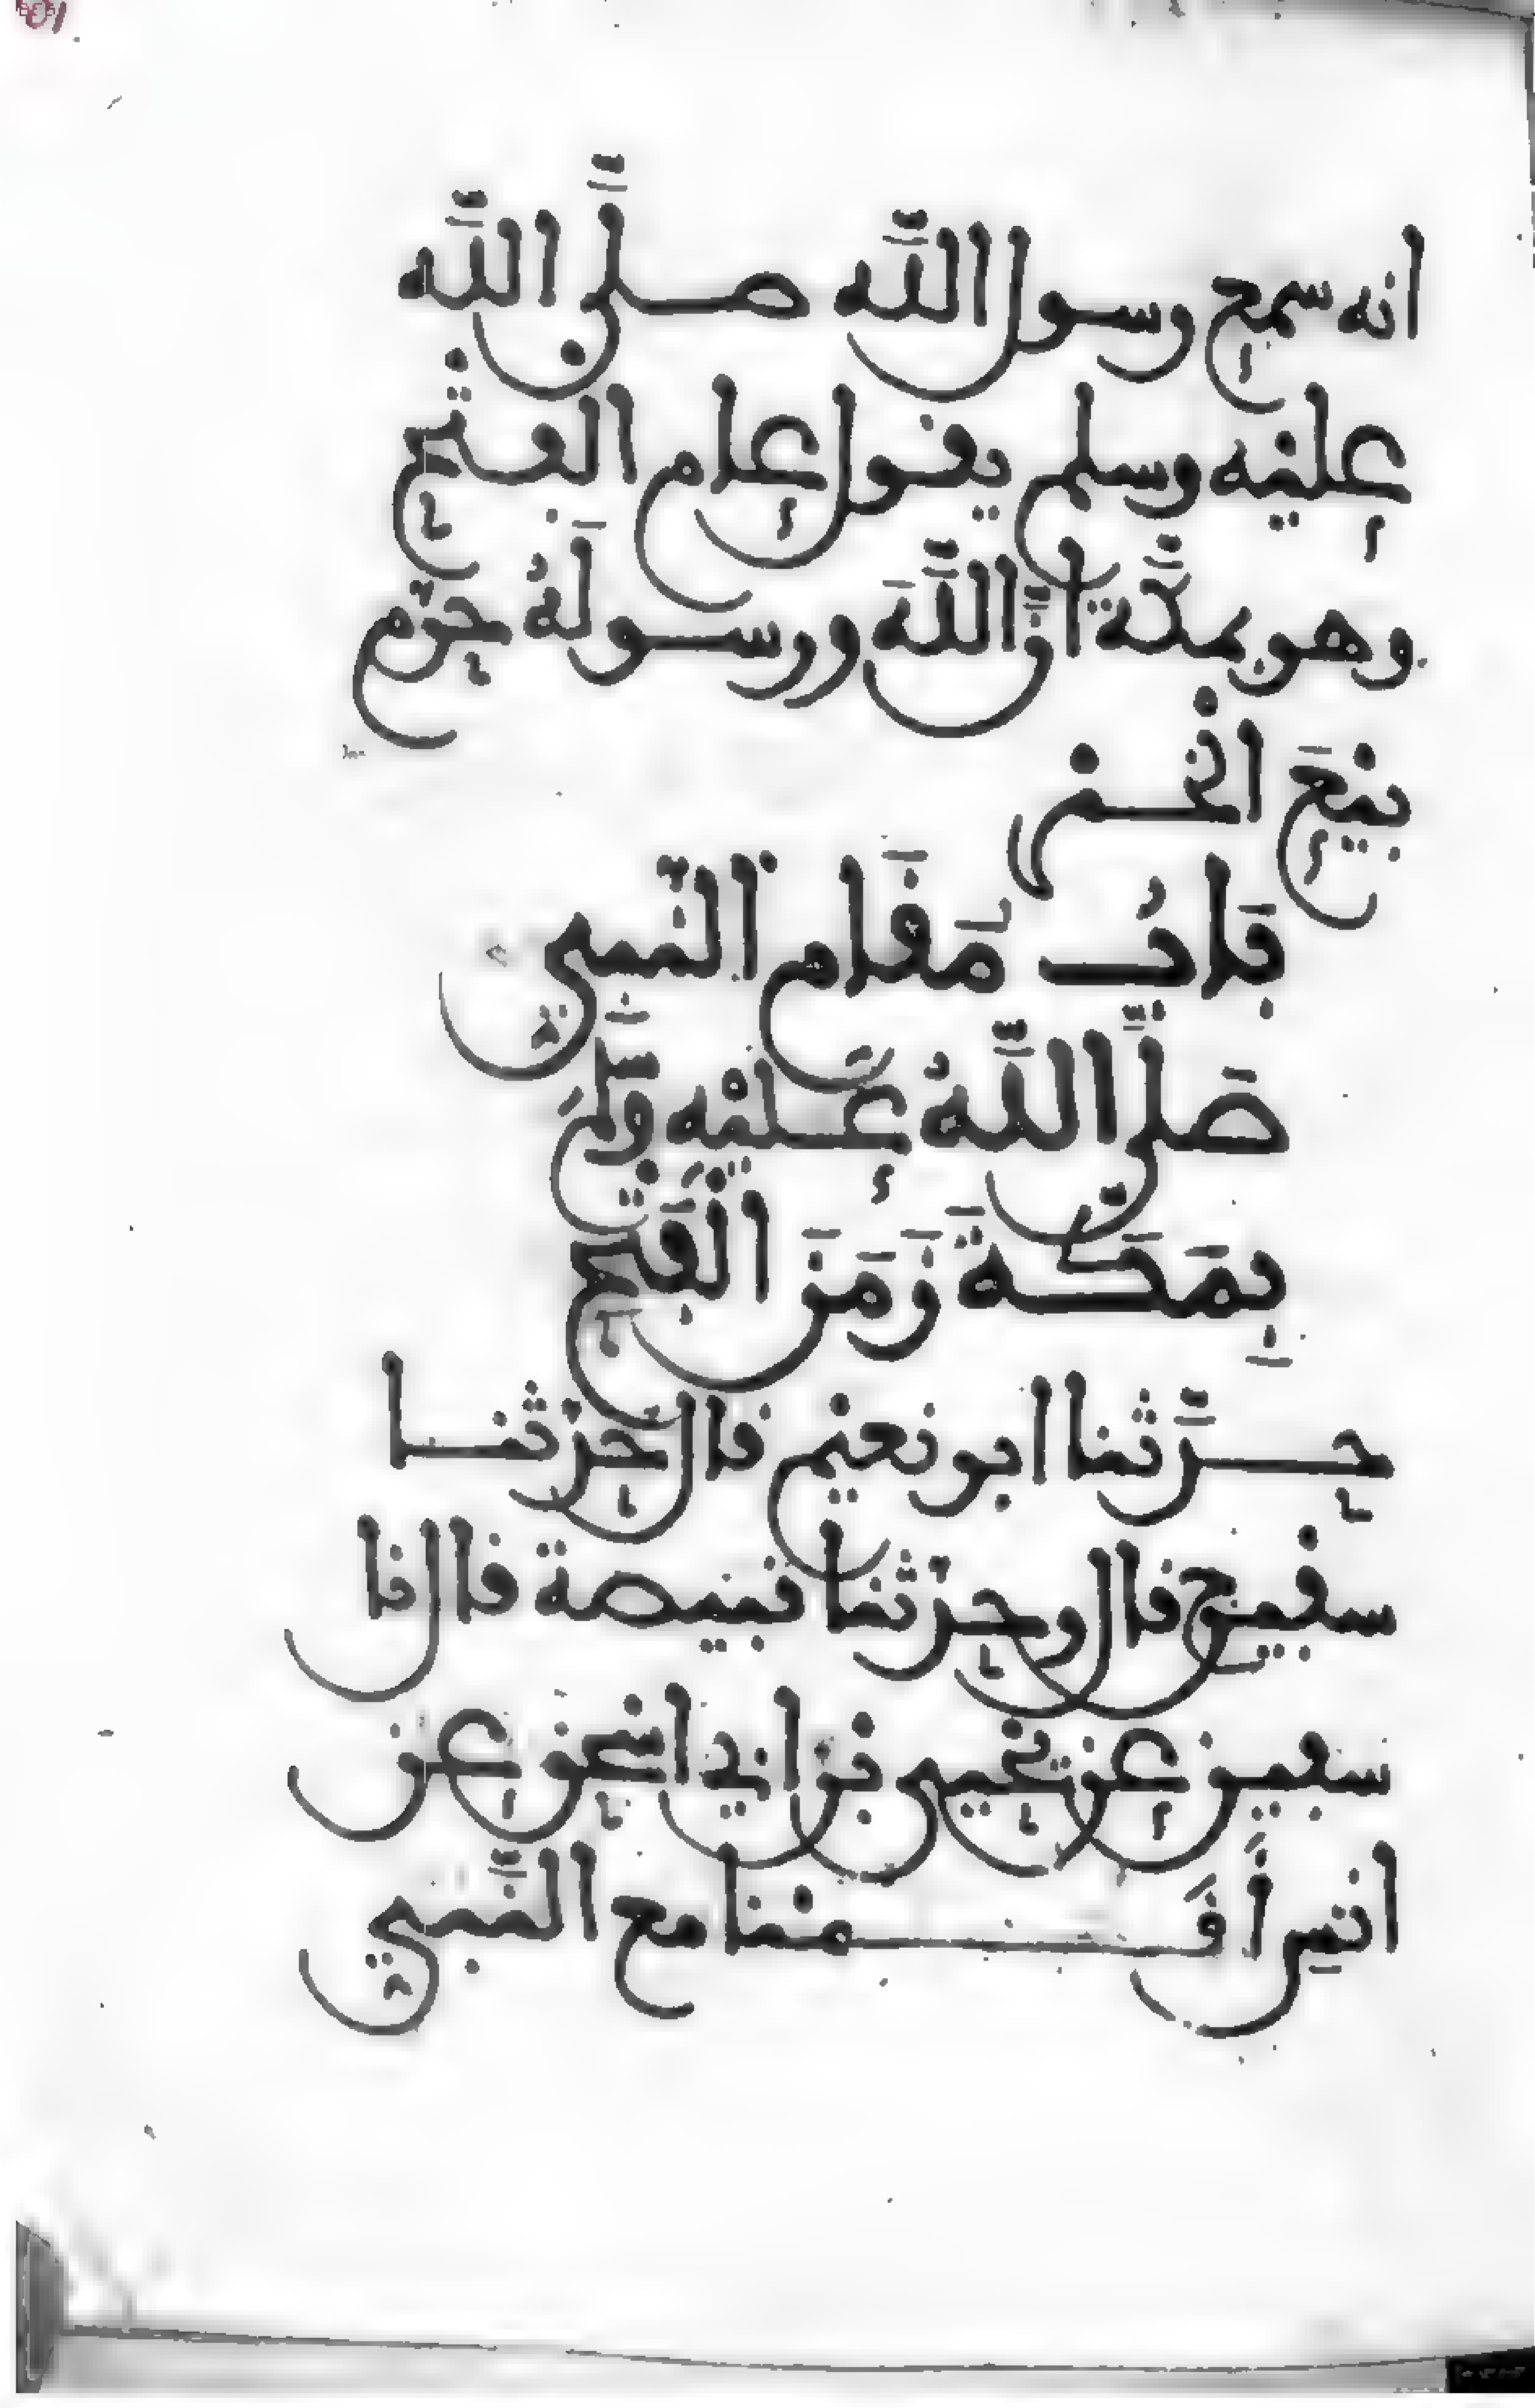 انه سمع رسول اللَّه صلَّى اللَّه
عليه وسلم يقول عام الفتح
وهو بمكَّة انَّ اللَّهَ ورسولَهُ حرَّم
بيعَ الخمر
بَابُ مَقَام النَّبي
صَلَّى اللَّهُ عَليْه وسَلَّمَ
بِمَكَةَ زَمَنَ الْفَتْح
حدَّثنا ابو نعيْم قال حدثنا
سفين ح قال وحدثنا قبيصة قال نا
سفين عن يحيى بن ابي اسحق عن
انسٍ أَقَمْنا مع النَّبي